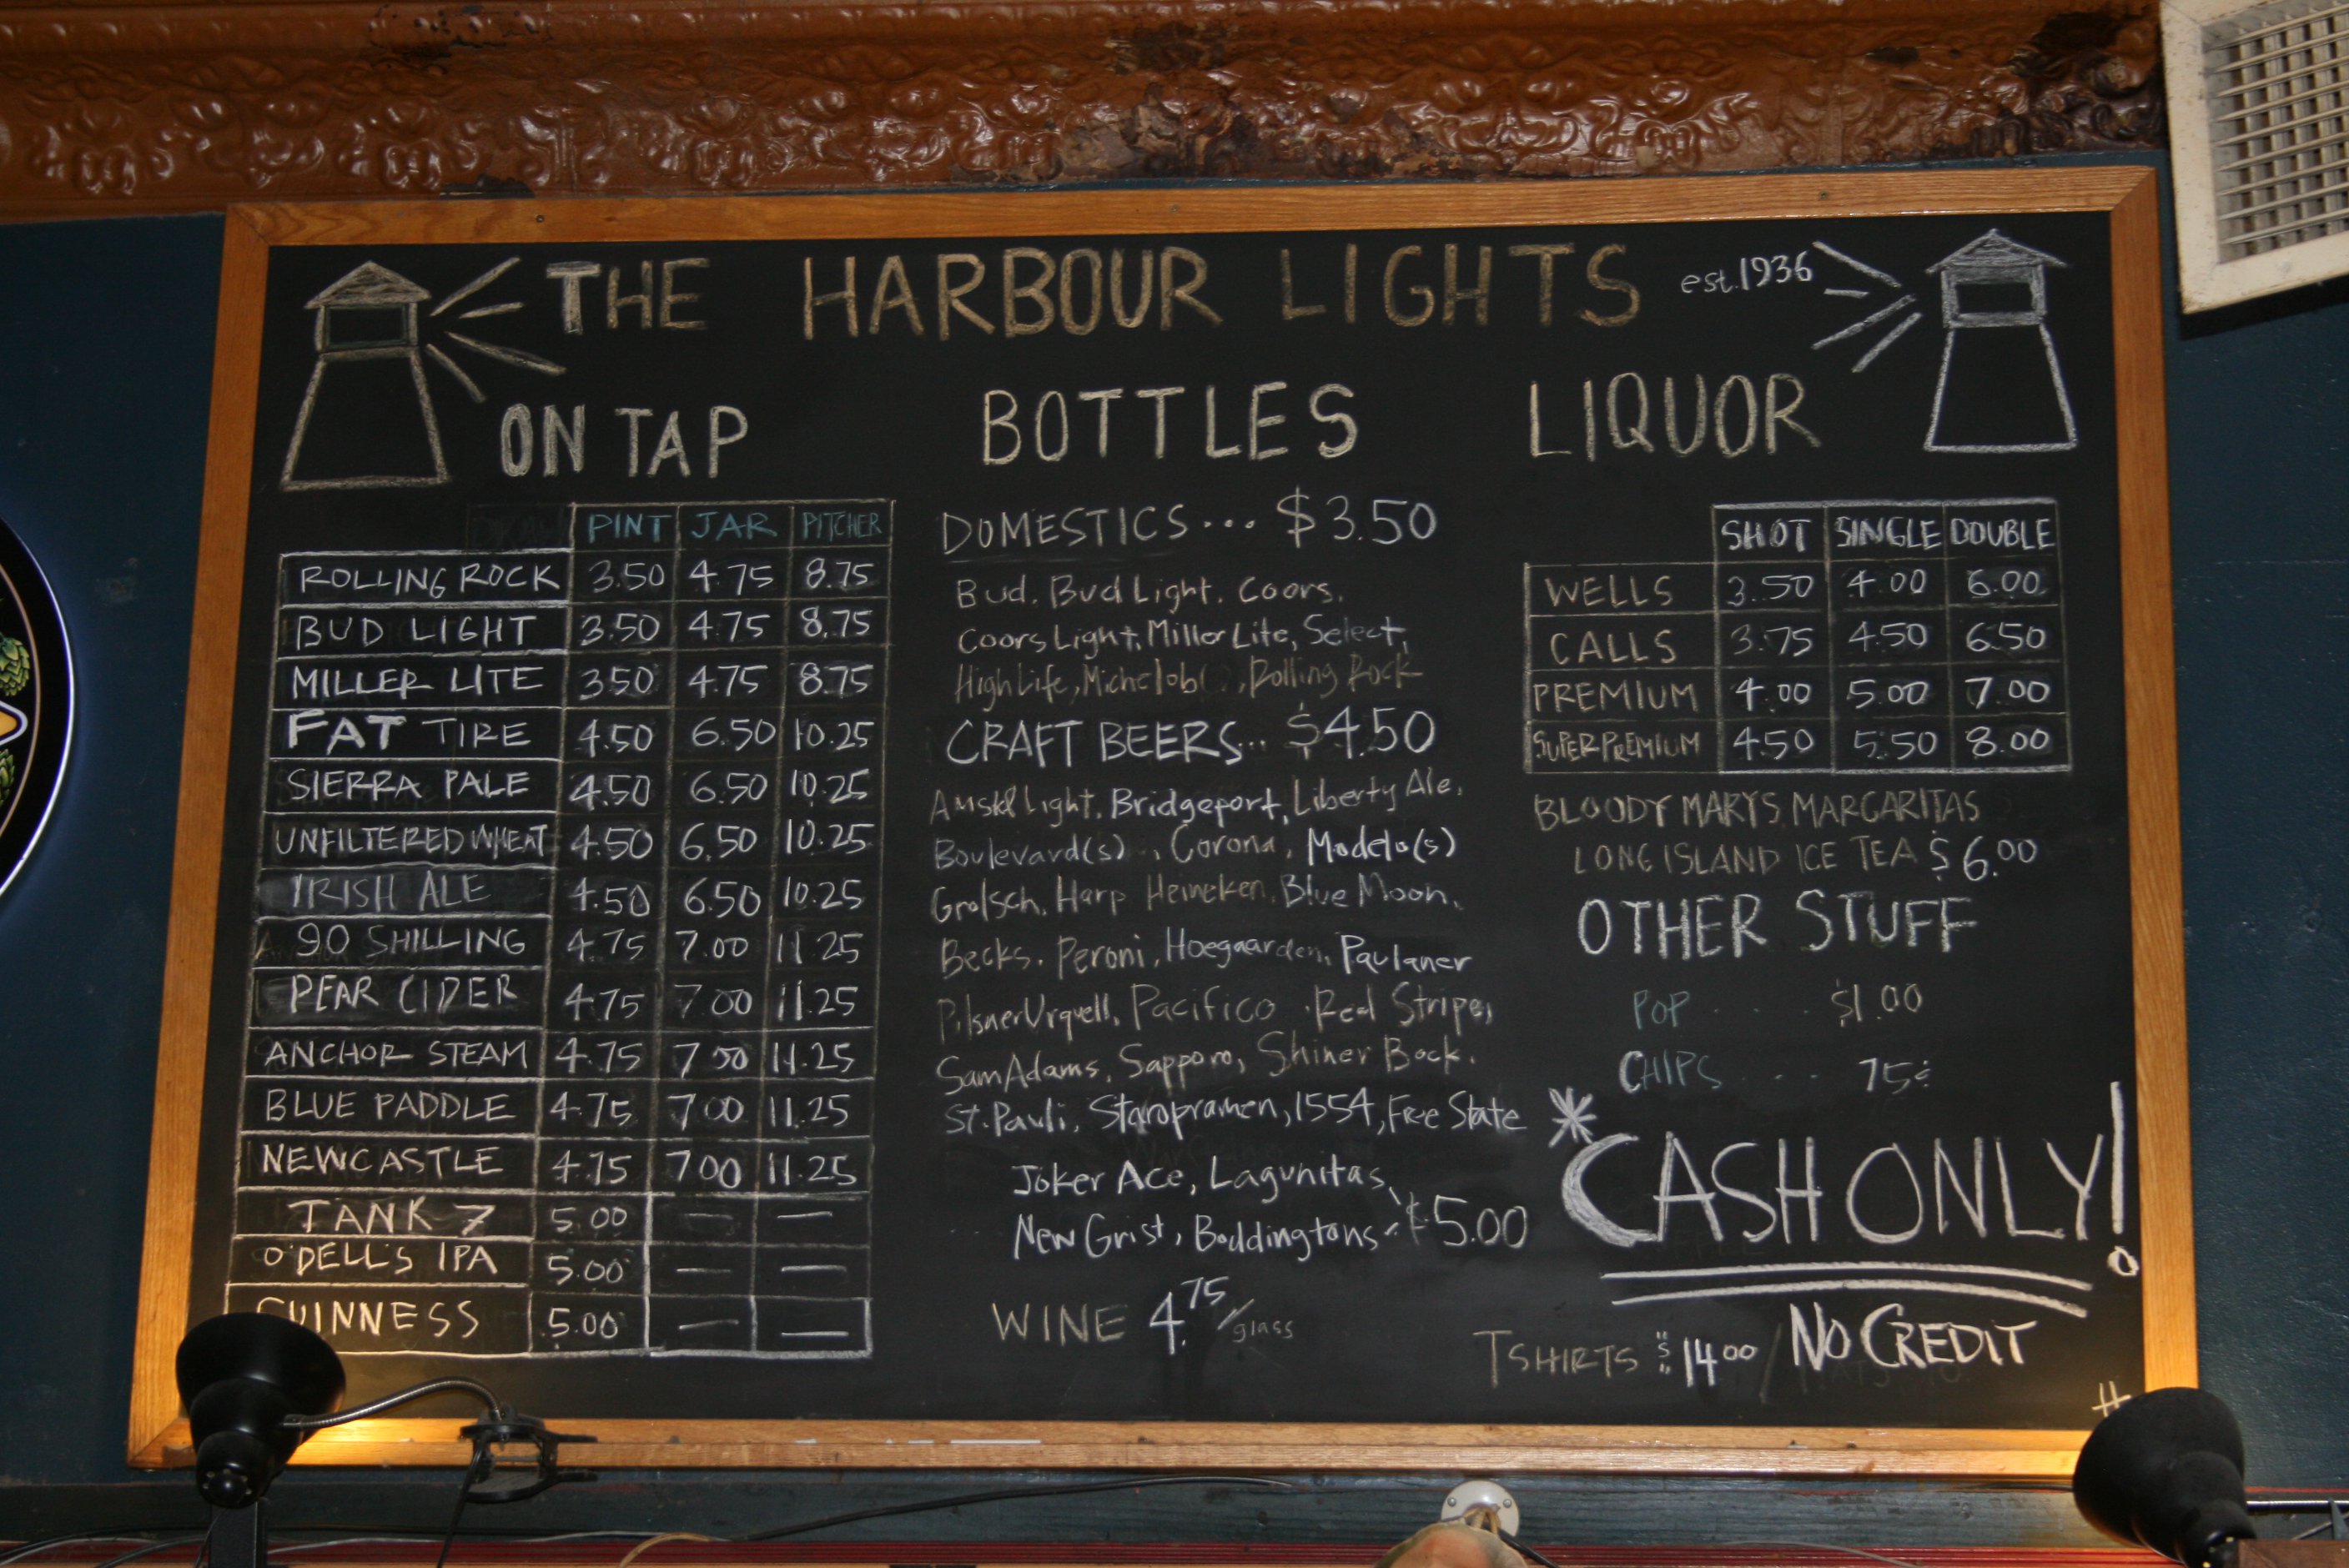 THE HARBOUR LIGHTS est. 1936
ON TAP
PINT JAR PITCHER
ROLLING ROCK 3.50 4.75 8.75
BUD LIGHT 3.50 4.75 8.75
MILLER LITE 350 4.75 8.75
FAT TIRE 4.50 6.50 10.25
SIERRA PALE 4.50 6.50 10.25
UNFILTERED WHEAT 4.50 6.50 10.25
IRISH ALE 4.50 6.50 10.25
90 SHILLING 4.75 7.00 11.25
PEAR CIDER 4.75 7.00 11.25
ANCHOR STEAM 4.75 7.00 11.25
BLUE PADDLE 4.75 7.00 11.25
NEWCASTLE 4.75 7.00 11.25
TANK 7 5.00 — —
O'DELL'S IPA 5.00 — —
GUINNESS 5.00 — —
BOTTLES
DOMESTICS ... $3.50
Bud. Bud Light. Coors.
Coors Light, Miller Lite, Select,
High Life, Michelob( ), Rolling Rock
CRAFT BEERS... $4.50
Amstel Light, Bridgeport, Liberty Ale.
Boulevard(s), Corona, Modelo(s)
Grolsch, Harp Heineken, Blue Moon.
Becks. Peroni, Hoegaarden, Paulaner
Pilsner Urquell, Pacifico, Red Stripe,
Sam Adams, Sapporo, Shiner Bock.
St. Pauli, Staropramen, 1554, Free State
Joker Ace, Lagunitas,
New Grist, Boddingtons $5.00
WINE 4.75/glass
LIQUOR
SHOT SINGLE DOUBLE
WELLS 3.50 4.00 6.00
CALLS 3.75 4.50 6.50
PREMIUM 4.00 5.00 7.00
SUPER PREMIUM 4.50 5.50 8.00
BLOODY MARYS MARGARITAS
LONG ISLAND ICE TEA $6.00
OTHER STUFF
POP .... $1.00
CHIPS ... 75¢
*CASH ONLY!
NO CREDIT
TSHIRTS $14.00